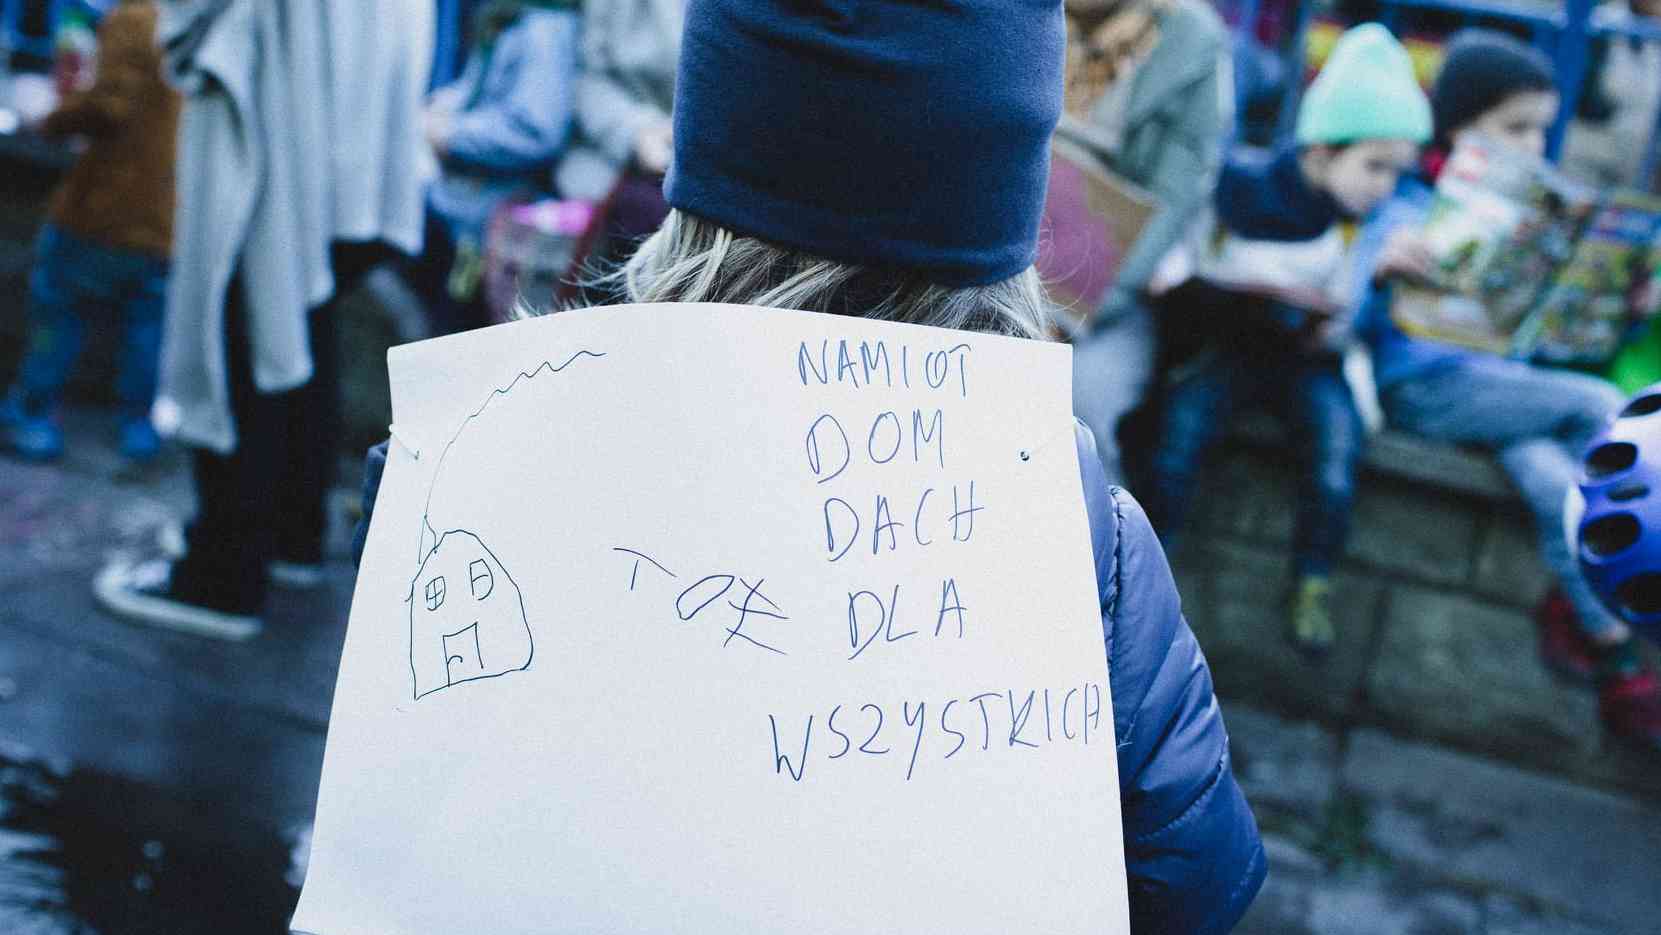 NAMIOT
DOM
DACH
DLA
WSZYSTKICH